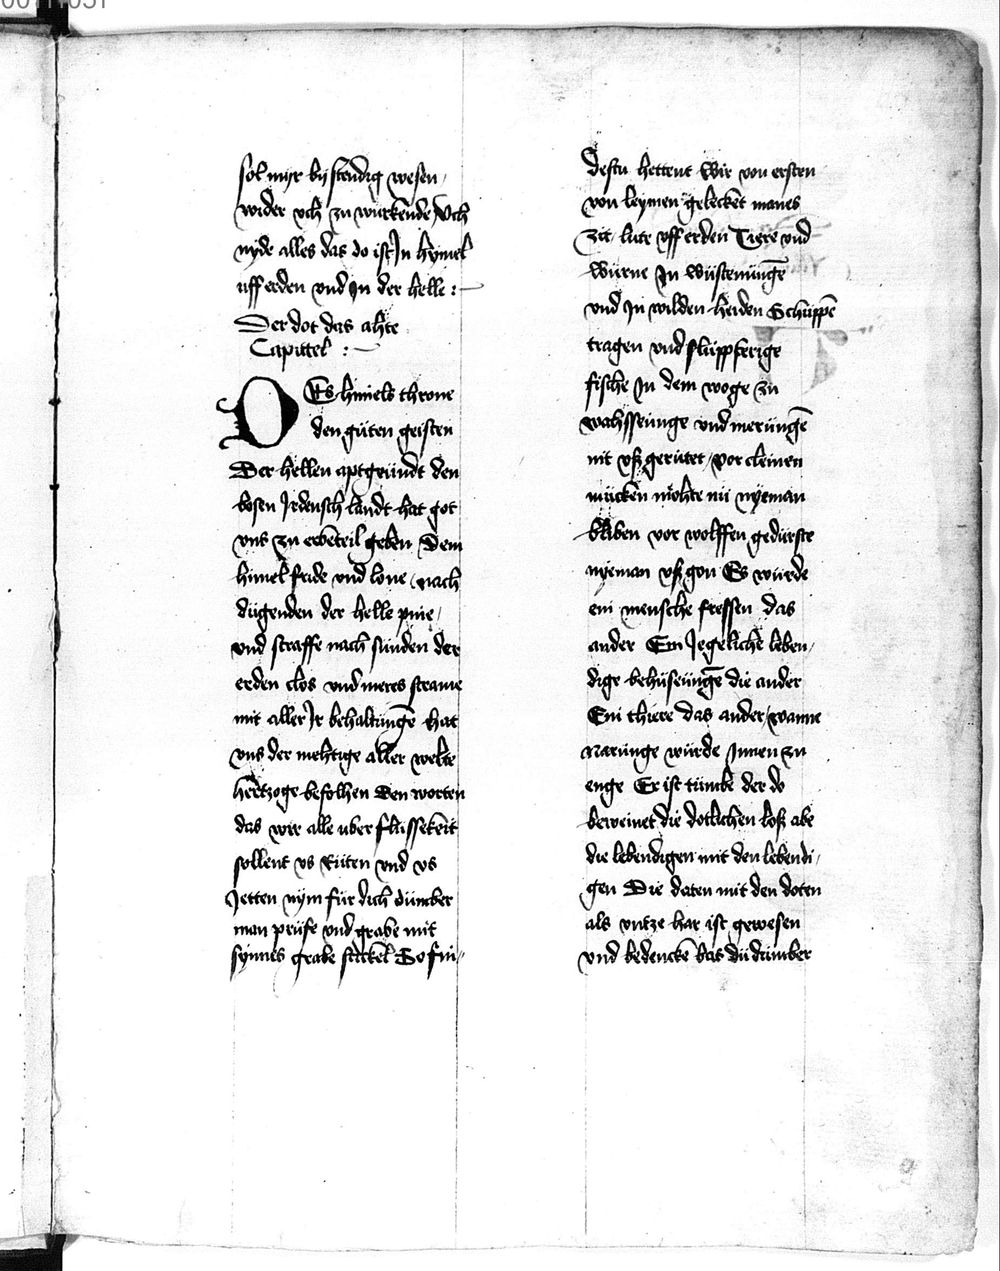 sol myr by stendig wesen
wider uch zu würkende Uch
nyde alles das do ist In hymel
uff erden vnd In der helle :
Der dot das ahte
Capittel :
DEs himels throne
den gůten geisten
Der hellen aptgründt den
bosen Irdensch landt hat got
vns zu erbeteil geben Dem
himel fride vnd lone nach
dügenden der helle pine
vnd straffe nach sünden der
erden clos vnd meres strame
mit aller Ir behaltünge hat
vns der mehtige aller welte
hertzoge befolhen Den worten
das wir alle uber flüssekeit
sollent vs Rüten vnd vs
Jetten nym für dich dümber
man prüfe vnd grabe mit
synnes grabe stickel So fin
destu hettent Wir von ersten
von leymen gelecket manes
zit lute vff erden Tiere vnd
Würme In wüstenunge
vnd In wilden heiden Schüppe
tragen vnd slüppferige
fische In dem woge zu
wahssenunge vnd merünge
nit vß gerütet vor cleinen
mücken möhte nü nyeman
bliben vor wolffen gedürste
nyeman vß gon Es würde
ein mensche fressen das
ander Ein Jegeliche leben
dige behüsünge die ander
Ein thiere das ander wanne
Narünge würde Innen zu
enge Er ist tümbe der do
beweinet die dotlichen loß abe
die lebendigen mit den lebendi
gen Die doten mit den doten
als vntze har ist gewesen
vnd bedencke bas du dümber